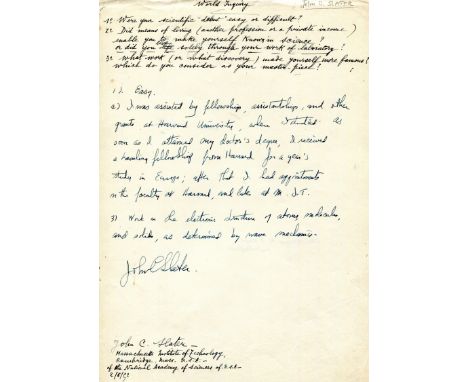 World Inquiry
John C. SLATER
1º Were your scientific debut easy or difficult?
2º Did means of living (another profession or a private income)
enable you to make yourself known in science?
or did you live solely through your work of laboratory?
3º What work (or what discovery) made yourself more famous?
which do you consider as your master piece?
1). Easy.
2) I was assisted by fellowships, assistantships, and other
grants at Harvard University, where I studied. As
soon as I attained my doctor's degree, I received
a traveling fellowship from Harvard for a year's
study in Europe; after that I had appointments
on the faculty at Harvard, and later at M.I.T.
3) Work on the electronic structure of atoms, molecules,
and solids, as determined by wave mechanics.
John C Slater
John C. Slater
Massachusetts Institute of Technology,
Cambridge, Mass. U.S.A.
of the National Academy of sciences of U.S.A.